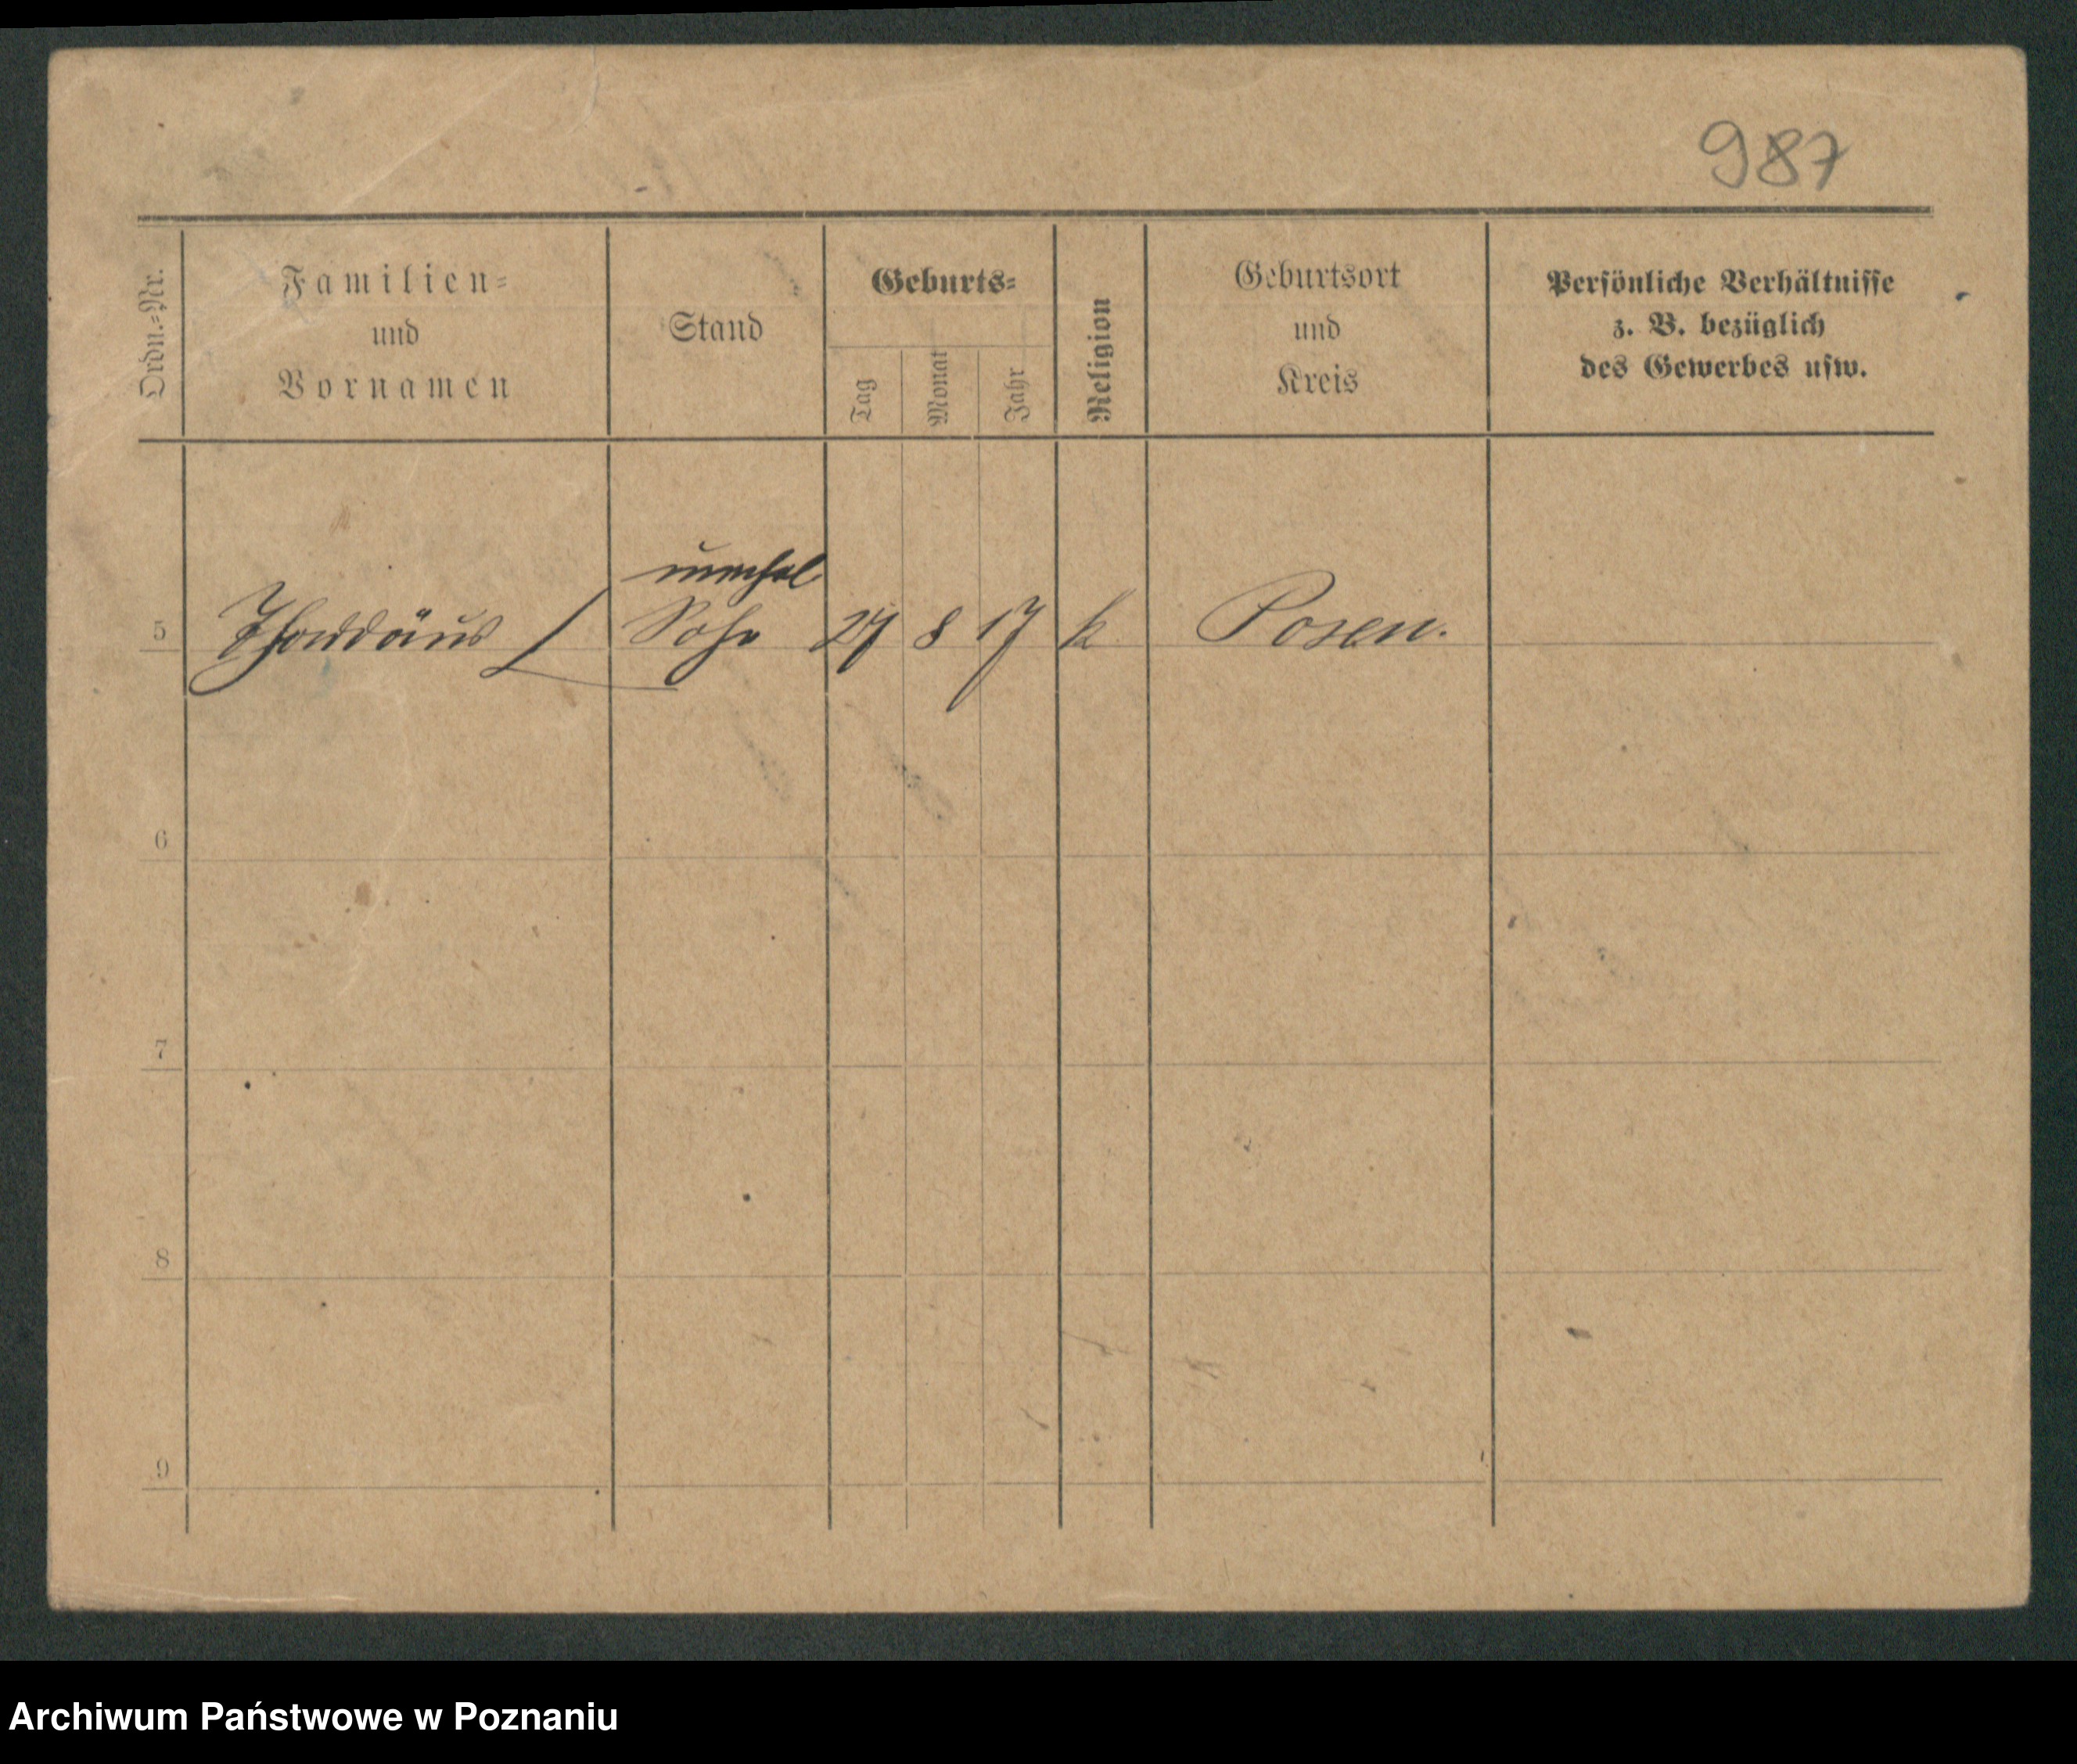 987
Ordn.-Nr.
Familien-
und
Vornamen
Stand
Geburts-
Tag
Monat
Jahr
Religion
Geburtsort
und
Kreis
Persönliche Verhältnisse
z. B. bezüglich
des Gewerbes usw.
unehel
5 Thaddäus Sohn 27 8 17 k Posen.
6
7
8
9
Archiwum Państwowe w Poznaniu